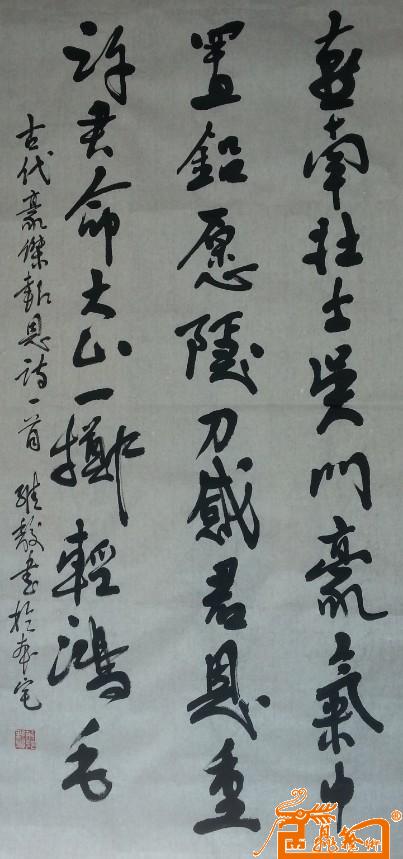 燕南壯士吴門豪氣中
置鉛愿隱刀感君恩重
許君命大山一擲輕鴻毛
古代豪傑報恩詩一首 維 書於本宅